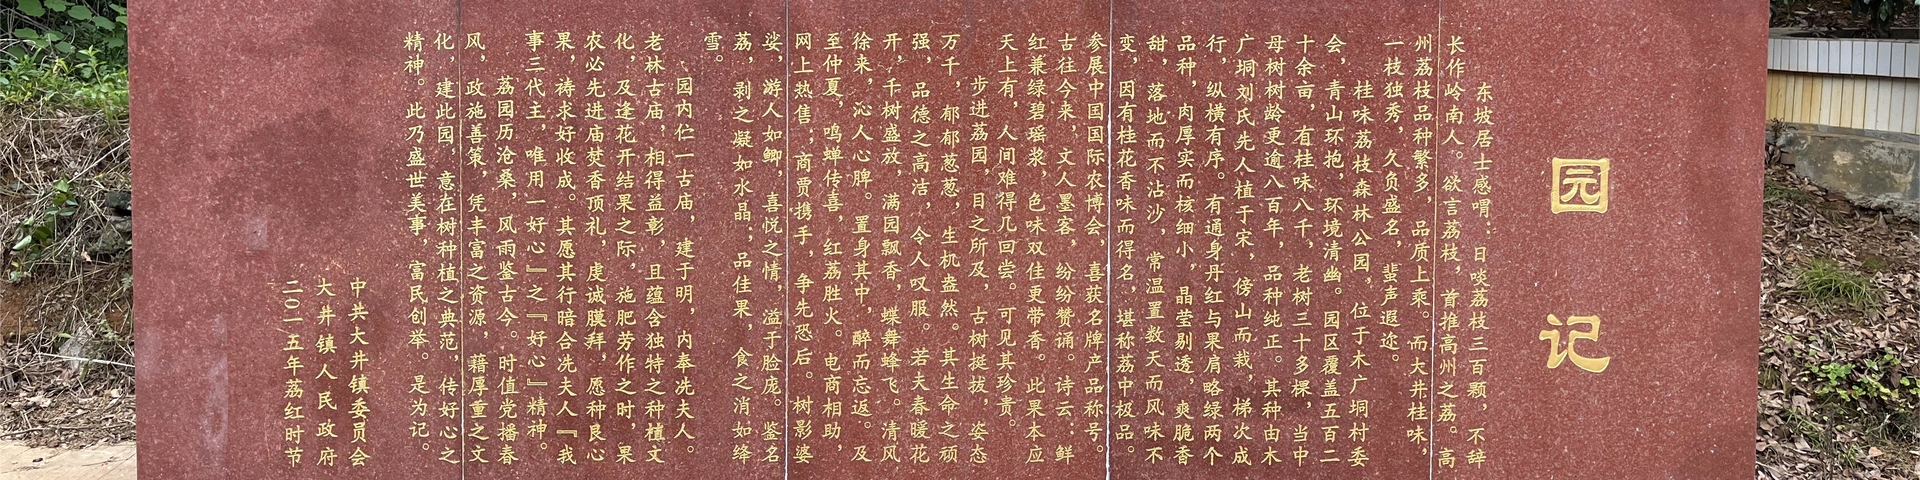 园记
东坡居士感喟：日啖荔枝三百颗，不辞
长作岭南人。欲言荔枝，首推高州之荔。高
州荔枝品种繁多，品质上乘。而大井桂味，
一枝独秀，久负盛名，蜚声遐迩。
桂味荔枝森林公园，位于木广垌村委
会，青山环抱，环境清幽。园区覆盖五百二
十余亩，有桂味八千，老树三十多棵，当中
母树树龄更逾八百年，品种纯正。其种由木
广垌刘氏先人植于宋，傍山而栽，梯次成
行，纵横有序。有通身丹红与果肩略绿两个
品种，肉厚实而核细小，晶莹剔透，爽脆香
甜，落地而不沾沙，常温置数天而风味不
变，因有桂花香味而得名，堪称荔中极品。
参展中国国际农博会，喜获名牌产品称号。
古往今来，文人墨客，纷纷赞诵。诗云：鲜
红兼绿碧瑶浆，色味双佳更带香。此果本应
天上有，人间难得几回尝。可见其珍贵。
步进荔园，目之所及，古树挺拔，姿态
万千，郁郁葱葱，生机盎然。其生命之顽
强，品德之高洁，令人叹服。若夫春暖花
开，千树盛放，满园飘香，蝶舞蜂飞。清风
徐来，沁人心脾。置身其中，醉而忘返。及
至仲夏，鸣蝉传喜，红荔胜火。电商相助，
网上热售；商贾携手，争先恐后。树影婆
娑，游人如鲫，喜悦之情，溢于脸庞。鉴名
荔，剥之凝如水晶；品佳果，食之消如绛
雪。
园内伫一古庙，建于明，内奉冼夫人。
老林古庙，相得益彰，且蕴含独特之种植文
化，及逢花开结果之际，施肥劳作之时，果
农必先进庙焚香顶礼，虔诚膜拜，愿种良心
果，祷求好收成。其愿其行暗合冼夫人『我
事三代主，唯用一好心』之『好心』精神。
荔园历沧桑，风雨鉴古今。时值党播春
风，政施善策，凭丰富之资源，藉厚重之文
化，建此园，意在树种植之典范，传好心之
精神。此乃盛世美事，富民创举。是为记。
中共大井镇委员会
大井镇人民政府
二〇一五年荔红时节